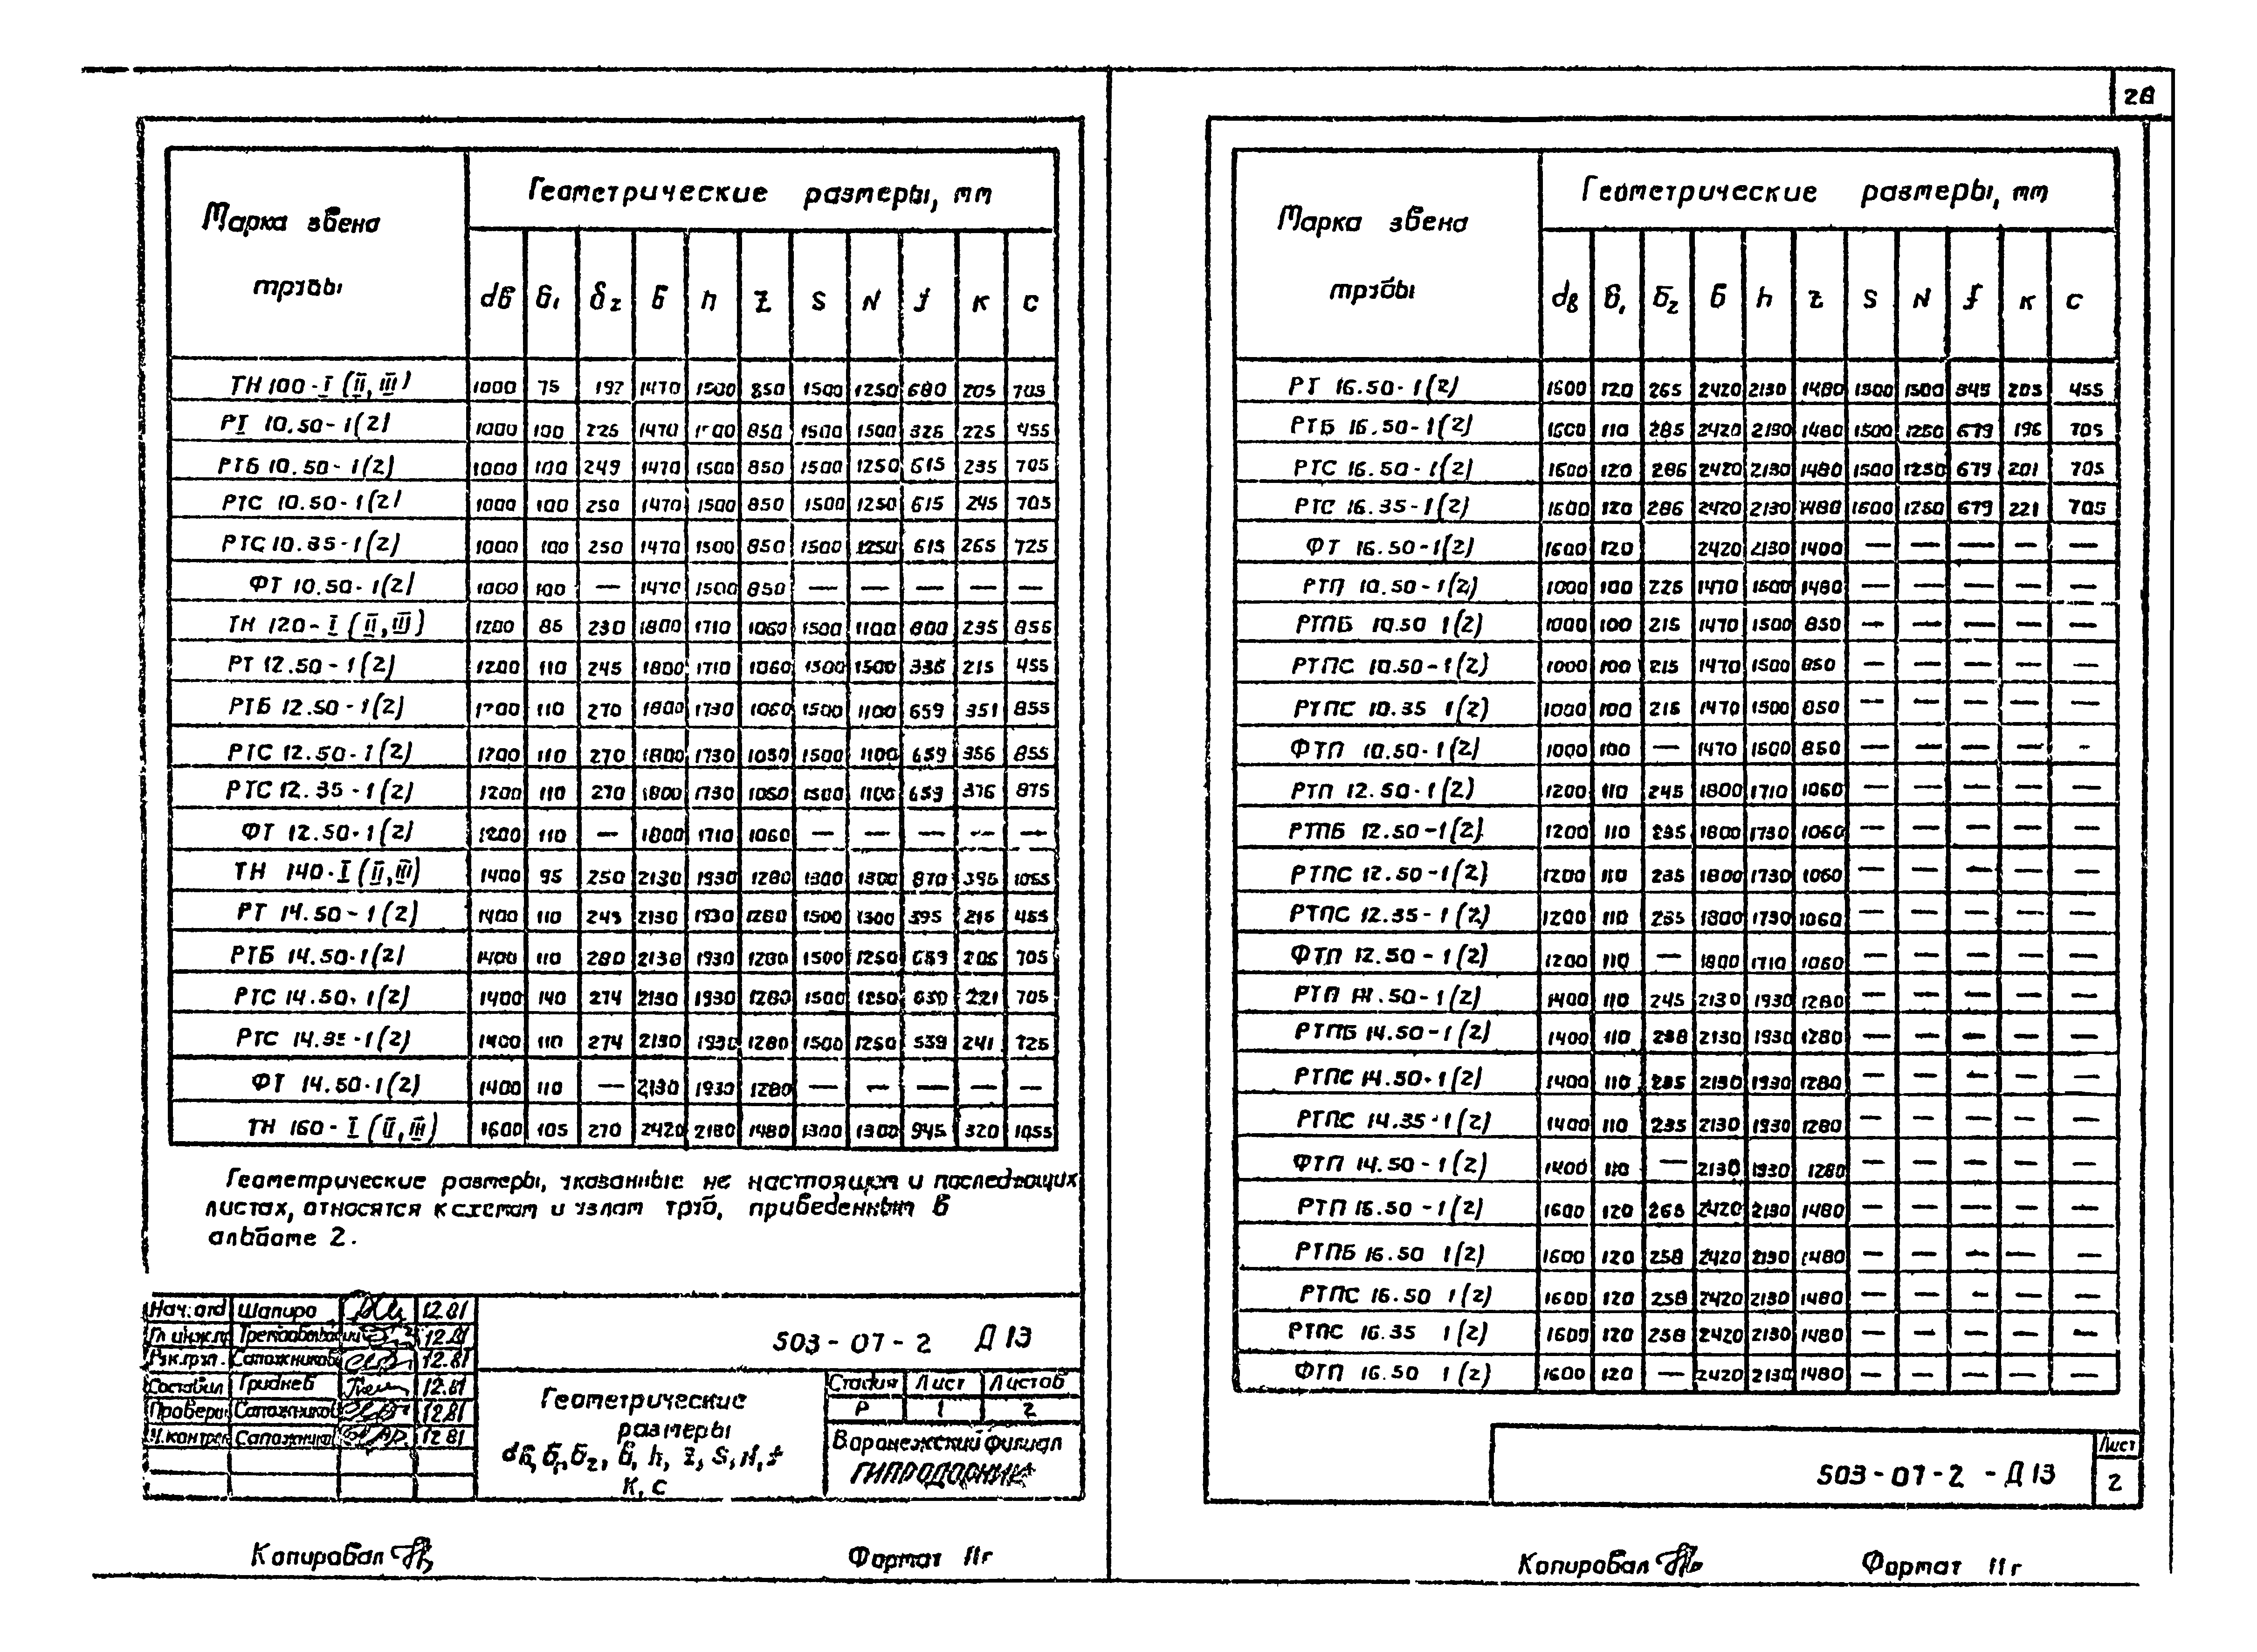 28
Геометрические размеры, мм
Марка звена трубы
dв б₁ δ₂ Б h Z S N f к с
ТН 100-I (II, III) 1000 75 197 1470 1500 850 1500 1250 680 205 705
РТ 10.50-1(2) 1000 100 225 1470 1500 850 1500 1500 326 225 455
РТБ 10.50-1(2) 1000 100 249 1470 1500 850 1500 1250 615 235 705
РТС 10.50-1(2) 1000 100 250 1470 1500 850 1500 1250 615 245 705
РТС 10.35-1(2) 1000 100 250 1470 1500 850 1500 1250 615 265 725
ФТ 10.50-1(2) 1000 100 — 1470 1500 850 — — — — —
ТН 120-I (II, III) 1200 85 230 1800 1710 1060 1500 1100 800 235 855
РТ 12.50-1(2) 1200 110 245 1800 1710 1060 1500 1500 336 215 455
РТБ 12.50-1(2) 1200 110 270 1800 1730 1060 1500 1100 659 351 855
РТС 12.50-1(2) 1200 110 270 1800 1730 1050 1500 1100 659 356 855
РТС 12.35-1(2) 1200 110 270 1800 1730 1060 1500 1100 659 376 875
ФТ 12.50-1(2) 1200 110 — 1800 1710 1060 — — — — —
ТН 140-I (II, III) 1400 95 250 2130 1930 1280 1300 1300 870 395 1055
РТ 14.50-1(2) 1400 110 245 2130 1930 1280 1500 1500 395 215 455
РТБ 14.50-1(2) 1400 110 280 2130 1930 1280 1500 1250 659 206 705
РТС 14.50-1(2) 1400 140 274 2130 1930 1280 1500 1250 630 221 705
РТС 14.35-1(2) 1400 110 274 2130 1930 1280 1500 1250 539 241 725
ФТ 14.50-1(2) 1400 110 — 2130 1930 1280 — — — — —
ТН 160-I (II, III) 1600 105 270 2420 2180 1480 1300 1300 945 320 1055
Геометрические размеры, указанные не настоящем и последующих
листах, относятся к схемам и узлам труб, приведенным в
альбоме 2.
Нач. отд Шапиро 12.81
Гл инж.пр 12.81
Рук.груп. Сапожников 12.81
Составил Гриднев 12.81
Проверил Сапожников 12.81
Н.контрол Сапожников 12 81
503-07-2 Д13
Геометрические
размеры
dв, б₁, б₂, б, h, Z, S, N, f
К, с
Стадия Лист Листов
Р 1 2
Воронежский филиал
ГИПРОДОРНИИ
Копировал
Формат 11г
Геометрические размеры, мм
Марка звена трубы
dв б₁ б₂ Б h Z S N f к с
РТ 16.50-1(2) 1600 120 265 2420 2130 1480 1500 1500 345 205 455
РТБ 16.50-1(2) 1600 110 285 2420 2130 1480 1500 1250 679 196 705
РТС 16.50-1(2) 1600 120 286 2420 2130 1480 1500 1250 679 201 705
РТС 16.35-1(2) 1600 120 286 2420 2130 1480 1500 1250 679 221 705
ФТ 16.50-1(2) 1600 120 2420 2130 1400 — — — — —
РТП 10.50-1(2) 1000 100 225 1470 1500 1480 — — — — —
РТПБ 10.50 1(2) 1000 100 215 1470 1500 850 — — — — —
РТПС 10.50-1(2) 1000 100 215 1470 1500 850 — — — — —
РТПС 10.35 1(2) 1000 100 215 1470 1500 850 — — — — —
ФТП 10.50-1(2) 1000 100 — 1470 1500 850 — — — — —
РТП 12.50-1(2) 1200 110 245 1800 1710 1060 — — — — —
РТПБ 12.50-1(2) 1200 110 235 1800 1730 1060 — — — — —
РТПС 12.50-1(2) 1200 110 235 1800 1730 1060 — — — — —
РТПС 12.35-1(2) 1200 110 235 1800 1730 1060 — — — — —
ФТП 12.50-1(2) 1200 110 — 1800 1710 1060 — — — — —
РТП 14.50-1(2) 1400 110 245 2130 1930 1280 — — — — —
РТПБ 14.50-1(2) 1400 110 238 2130 1930 1280 — — — — —
РТПС 14.50-1(2) 1400 110 235 2130 1930 1280 — — — — —
РТПС 14.35-1(2) 1400 110 235 2130 1930 1280 — — — — —
ФТП 14.50-1(2) 1400 110 — 2130 1930 1280 — — — — —
РТП 16.50-1(2) 1600 120 265 2420 2130 1480 — — — — —
РТПБ 16.50 1(2) 1600 120 258 2420 2130 1480 — — — — —
РТПС 16.50 1(2) 1600 120 258 2420 2130 1480 — — — — —
РТПС 16.35 1(2) 1600 120 258 2420 2130 1480 — — — — —
ФТП 16.50 1(2) 1600 120 — 2420 2130 1480 — — — — —
503-07-2-Д13
Лист
2
Копировал
Формат 11г